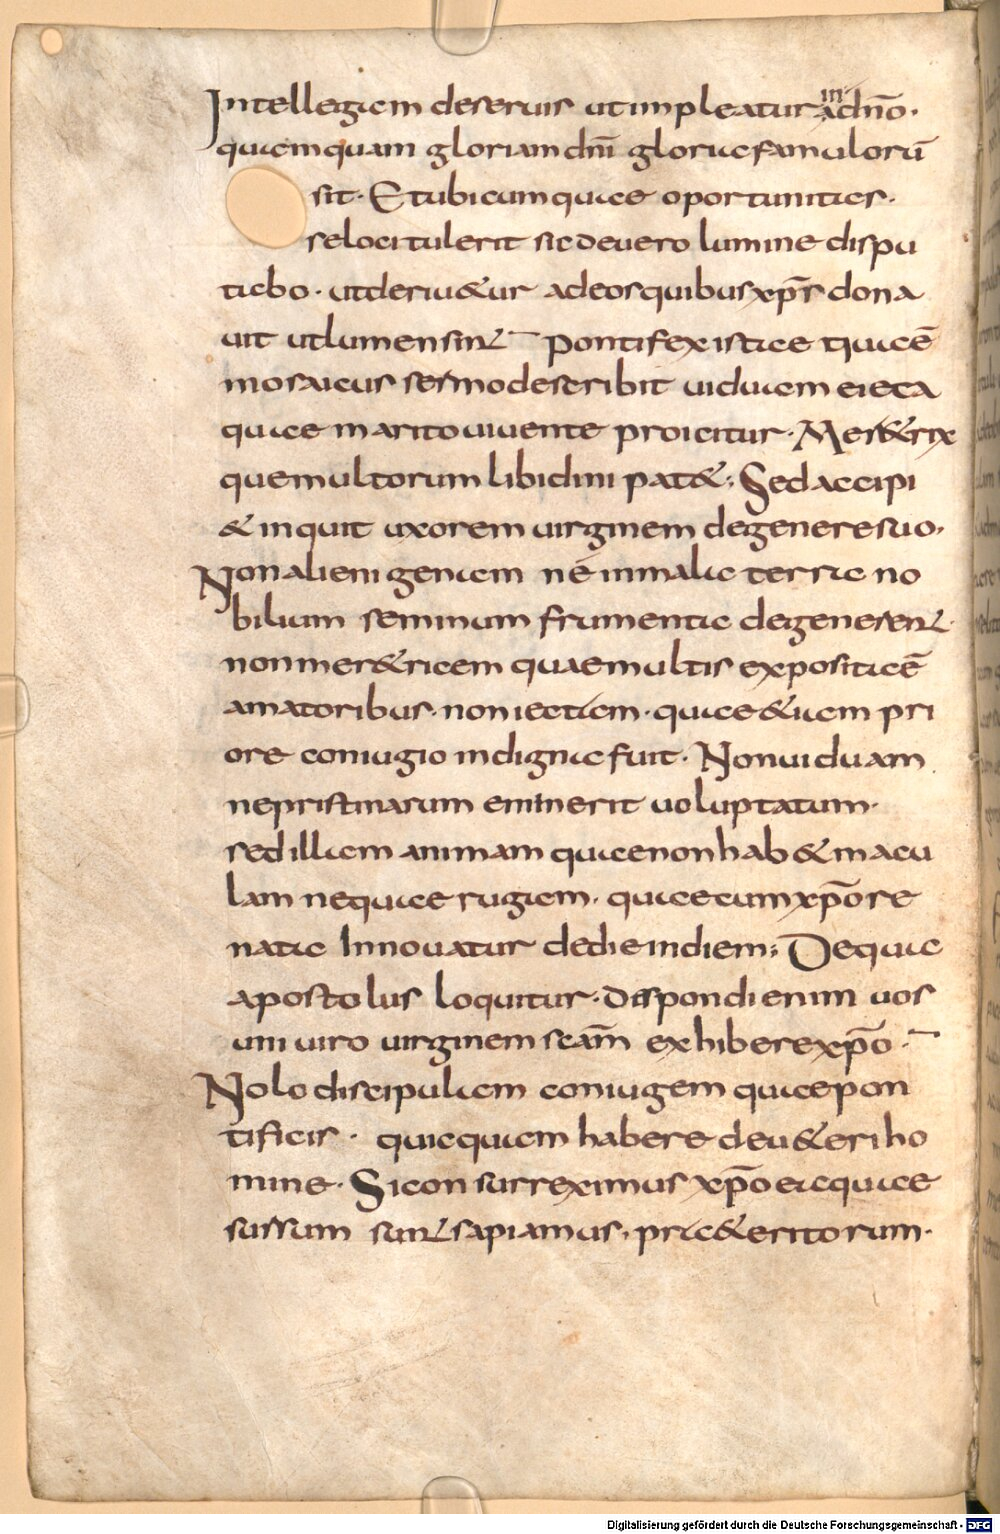 Intellegam deseruis utimpleatur in adn̄o·
quamquam gloriam dn̄i gloria famulorū
sit· Et ubicumquae oportunitas·
seloci tulerit sic de uero lumine dispu
tabo· ut deriu&ur ad eos quibus xp̄s dona
uit ut lumen sint Pontifex istae quaē
mosaicus sermo describit uiduam eiecta
quae marito uiuente proicitur· Mer&rix
que multorum libidini pat&; Sed accipi
& inquit uxorem uirginem de genere suo·
Non alienigenam ne in mala terra no
bilium seminum frumenta degenerent·
non mer&ricem quae multis expositaē
amatoribus· non iectam· quae &iam pri
ore coniugio indigna fuit· Non uiduam
ne pristinarum eminerit uoluptatum·
sed illam animam quae non hab& macu
lam neque rugam· quae cum xp̄o re
nata Innouatur de die in diem; De qua
apostolus loquitur· dispondi enim uos
uni uiro uirginem scām exhibere xp̄o·
Nolo discipulam coniugem quae pon
tificis· quicquam habere de u&eri ho
mine· Si consurreximus xp̄o ea quae
sursum sunt sapiamus· pra&eritorum·
Digitalisierung gefördert durch die Deutsche Forschungsgemeinschaft - DFG